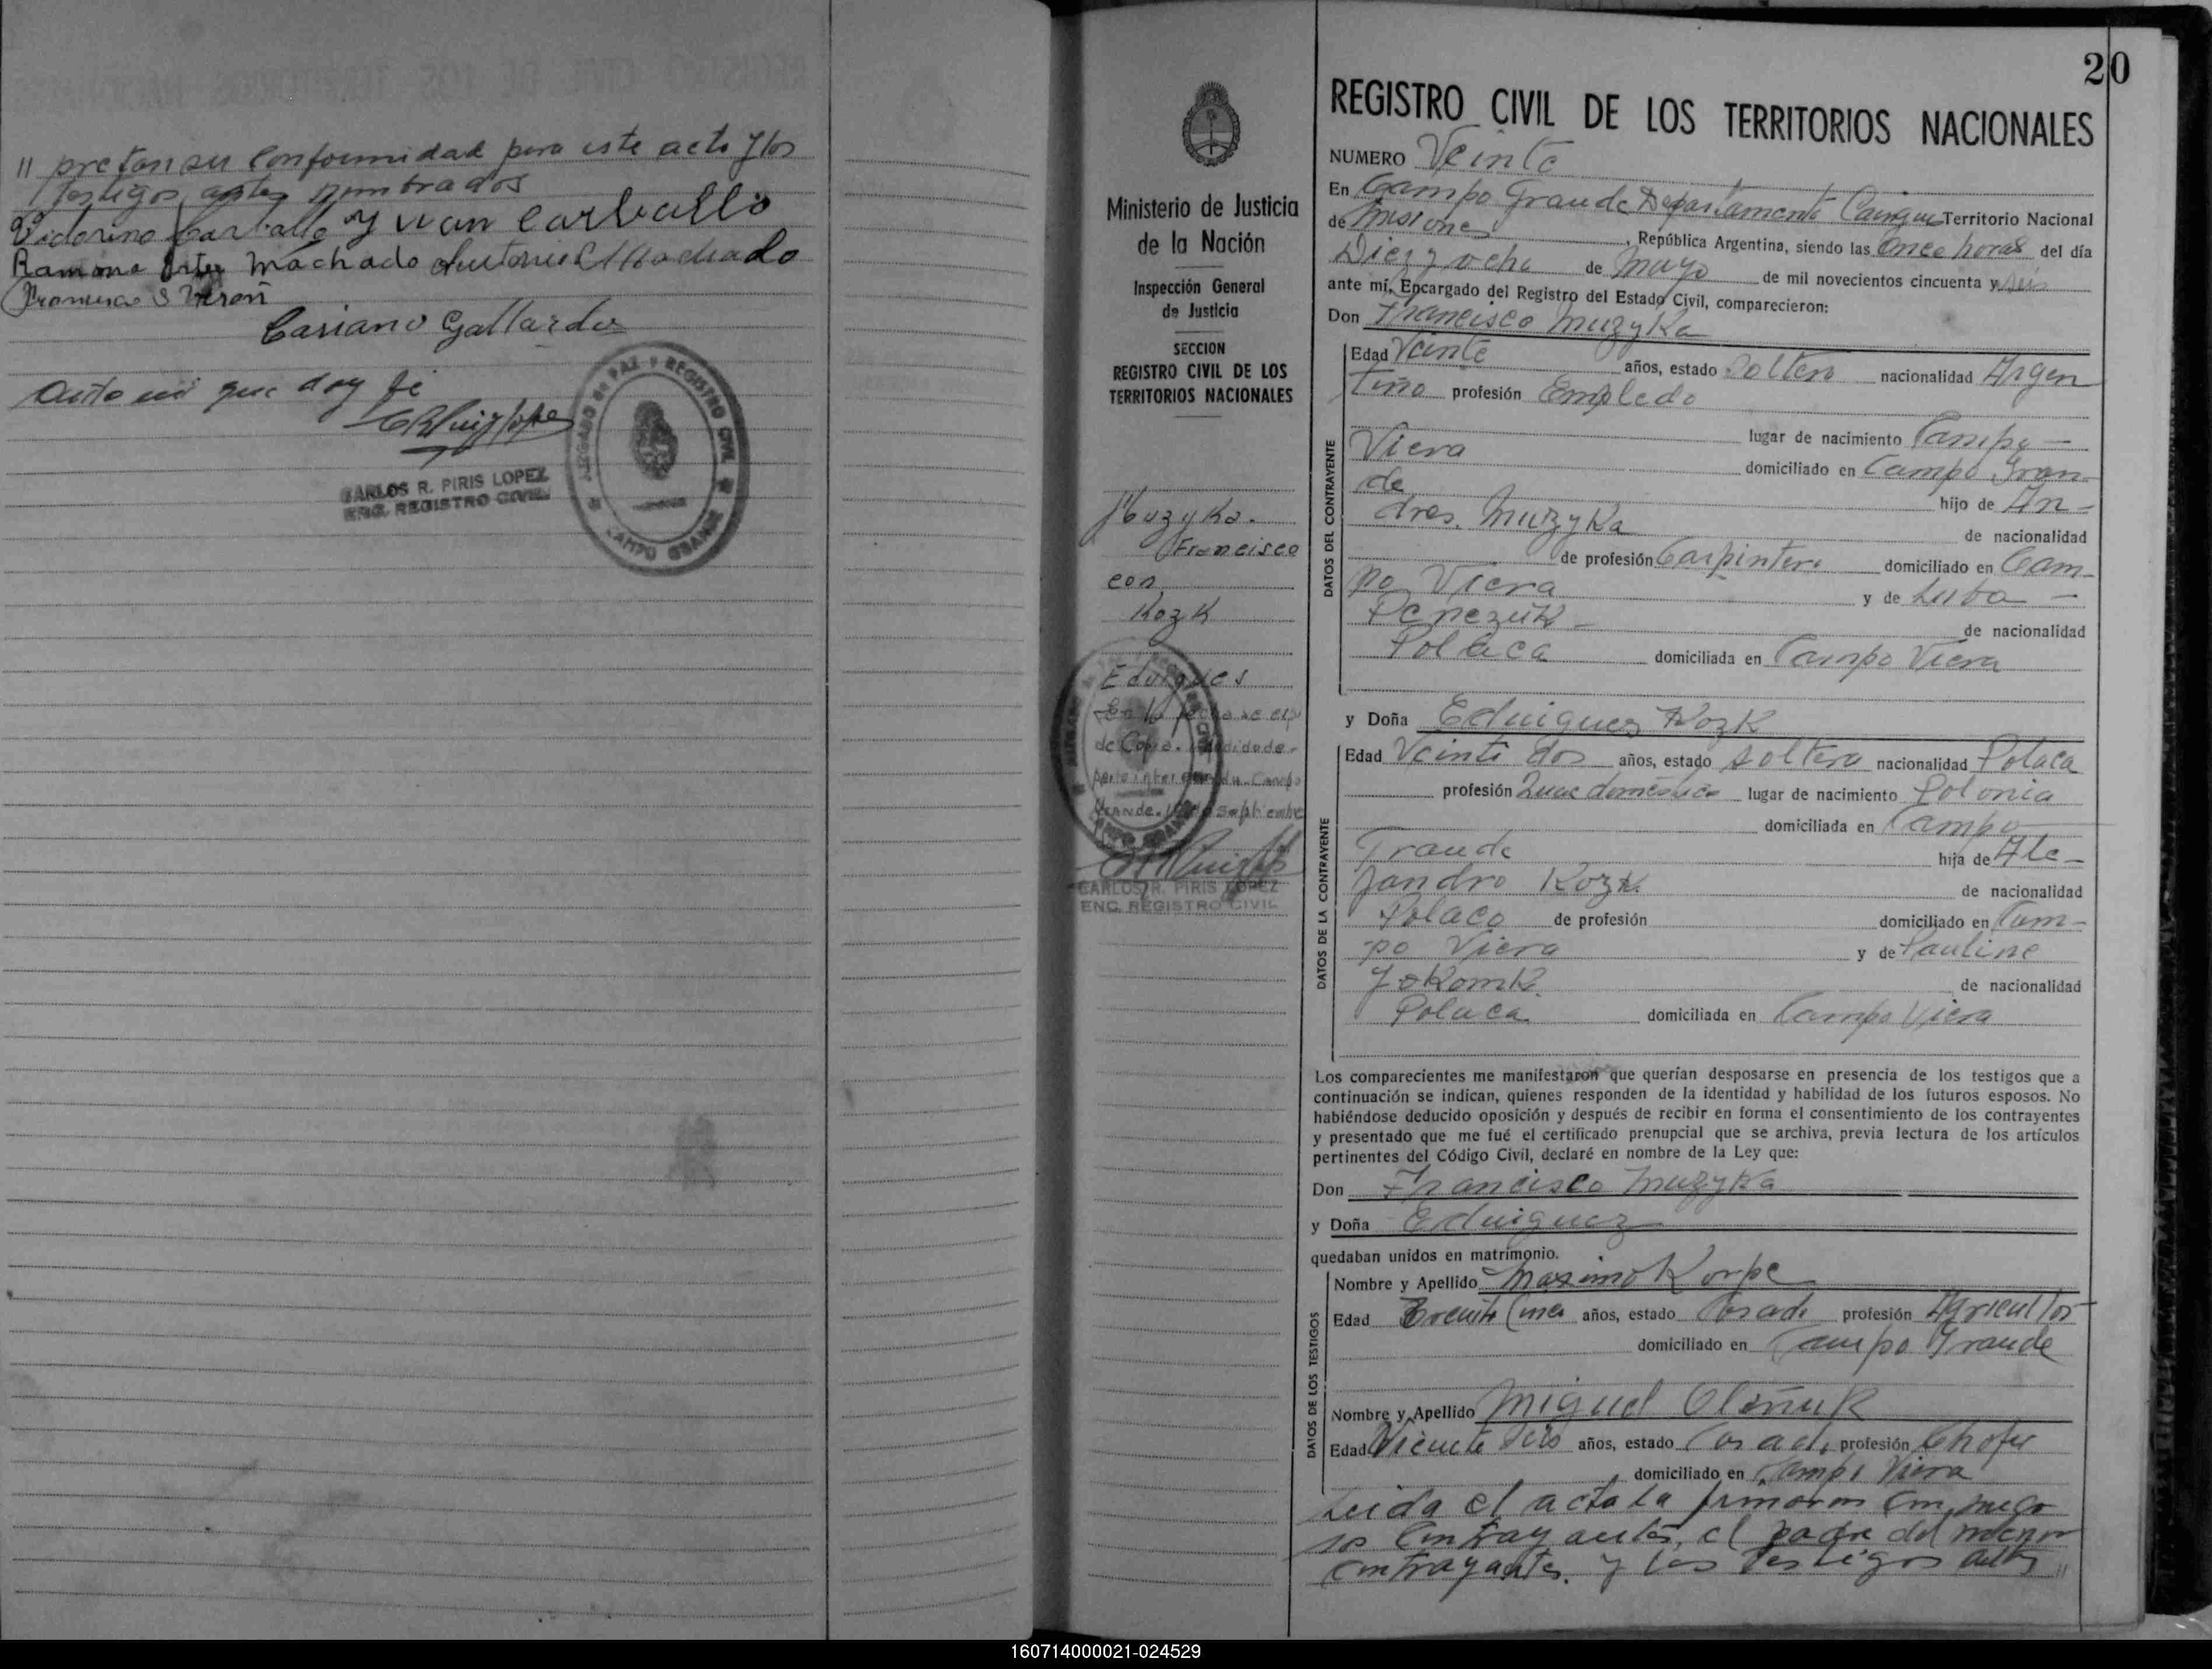 " pretan su Conformidad para este acto y los
testigos antes nombrados
Vidorino Carballo Juan Carballo
Ramona Machado Antonio Machado
Francisco S Veron
Casiano Gallardo
Ante mi que doy fe
CARLOS R. PIRIS LOPEZ
ENC. REGISTRO CIVIL
JUZGADO DE PAZ Y REGISTRO CIVIL
CAMPO GRANDE
Ministerio de Justicia
de la Nación
Inspección General
de Justicia
SECCION
REGISTRO CIVIL DE LOS
TERRITORIOS NACIONALES
Muzyka.
Francisco
con
Kozk
Eduigues
En la fecha se
de Copia.
Grande. Septiembre
CARLOS R. PIRIS LOPEZ
ENC. REGISTRO CIVIL
20
REGISTRO CIVIL DE LOS TERRITORIOS NACIONALES
NUMERO Veinte
En Campo Grande Departamento Cainguas Territorio Nacional
de Misiones, República Argentina, siendo las Once horas del día
Diez y ocho de Mayo de mil novecientos cincuenta y seis
ante mi, Encargado del Registro del Estado Civil, comparecieron:
Don Francisco Muzyka
DATOS DEL CONTRAYENTE
Edad Veinte años, estado Soltero nacionalidad Argen
tino profesión Empledo
lugar de nacimiento Campo
Viera domiciliado en Campo Gran
de hijo de An-
dres. Muzyka de nacionalidad
de profesión Carpintero domiciliado en Cam-
po Viera y de Luba
Penezuk de nacionalidad
Polaca domiciliada en Campo Viera
y Doña Eduigues Kozk
DATOS DE LA CONTRAYENTE
Edad Veinti dos años, estado soltera nacionalidad Polaca
profesión Quac domesticos lugar de nacimiento Polonia
domiciliada en Campo
Grande hija de Ale-
jandro Kozk. de nacionalidad
Polaco de profesión domiciliado en Cam-
po Viera y de Pauline
Jokomk de nacionalidad
Polaca domiciliada en Campo Viera
Los comparecientes me manifestaron que querían desposarse en presencia de los testigos que a
continuación se indican, quienes responden de la identidad y habilidad de los futuros esposos. No
habiéndose deducido oposición y después de recibir en forma el consentimiento de los contrayentes
y presentado que me fué el certificado prenupcial que se archiva, previa lectura de los artículos
pertinentes del Código Civil, declaré en nombre de la Ley que:
Don Francisco Muzyka
y Doña Eduiguez
quedaban unidos en matrimonio.
DATOS DE LOS TESTIGOS
Nombre y Apellido Maximo Korpe
Edad Treinta Cinco años, estado Casado profesión Agricultor
domiciliado en Campo Grande
Nombre y Apellido Miguel Olinuk
Edad Vicente Seis años, estado Casado profesión Chofer
domiciliado en Campo Viera
Leida el acta la firmaron
los Contrayentes, el padre del menor
contrayantes. y los testigos antes "
160714000021-024529